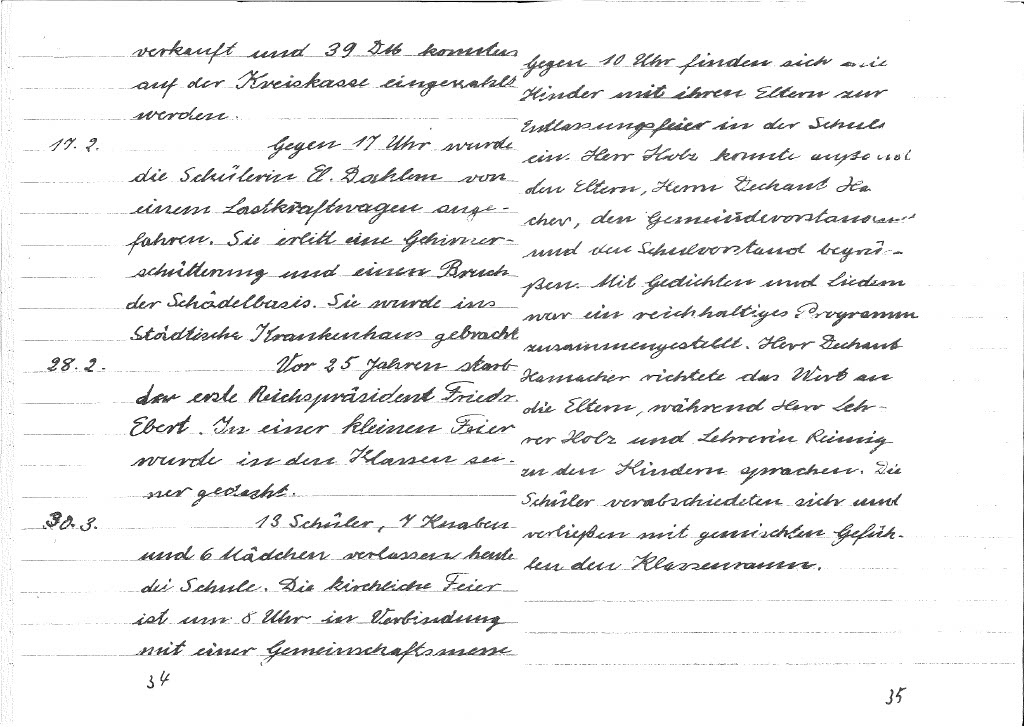 verkauft und 39 DM konnten
auf der Kreiskasse eingezahlt
werden.
17.2. Gegen 17 Uhr wurde
die Schülerin El. Dahlem von
einem Lastkraftwagen ange-
fahren. Sie erlitt eine Gehirner-
schütterung und einen Bruch
der Schädelbasis. Sie wurde ins
Städtische Krankenhaus gebracht
28.2. Vor 25 Jahren starb
der erste Reichspräsident Friedr.
Ebert. In einer kleinen Feier
wurde in den Klassen sei-
ner gedacht.
30.3. 13 Schüler, 7 Knaben
und 6 Mädchen verlassen heute
die Schule. Die kirchliche Feier
ist um 8 Uhr in Verbindung
mit einer Gemeinschaftsmesse
34
Gegen 10 Uhr finden sich die
Kinder mit ihren Eltern zur
Entlassungsfeier in der Schule
ein. Herr Holz konnte außer
den Eltern, Herrn Dechant Ha
cher, den Gemeindevorstand und
und den Schulvorstand begrü-
ßen. Mit Gedichten und Liedern
war ein reichhaltiges Programm
zusammengestellt. Herr Dechant
Hamacher richtete das Wort an
die Eltern, während Herr Leh-
rer Holz und Lehrerin Reinig
zu den Kindern sprachen. Die
Schüler verabschiedeten sich und
verließen mit gemischten Gefüh-
len den Klassenraum.
35